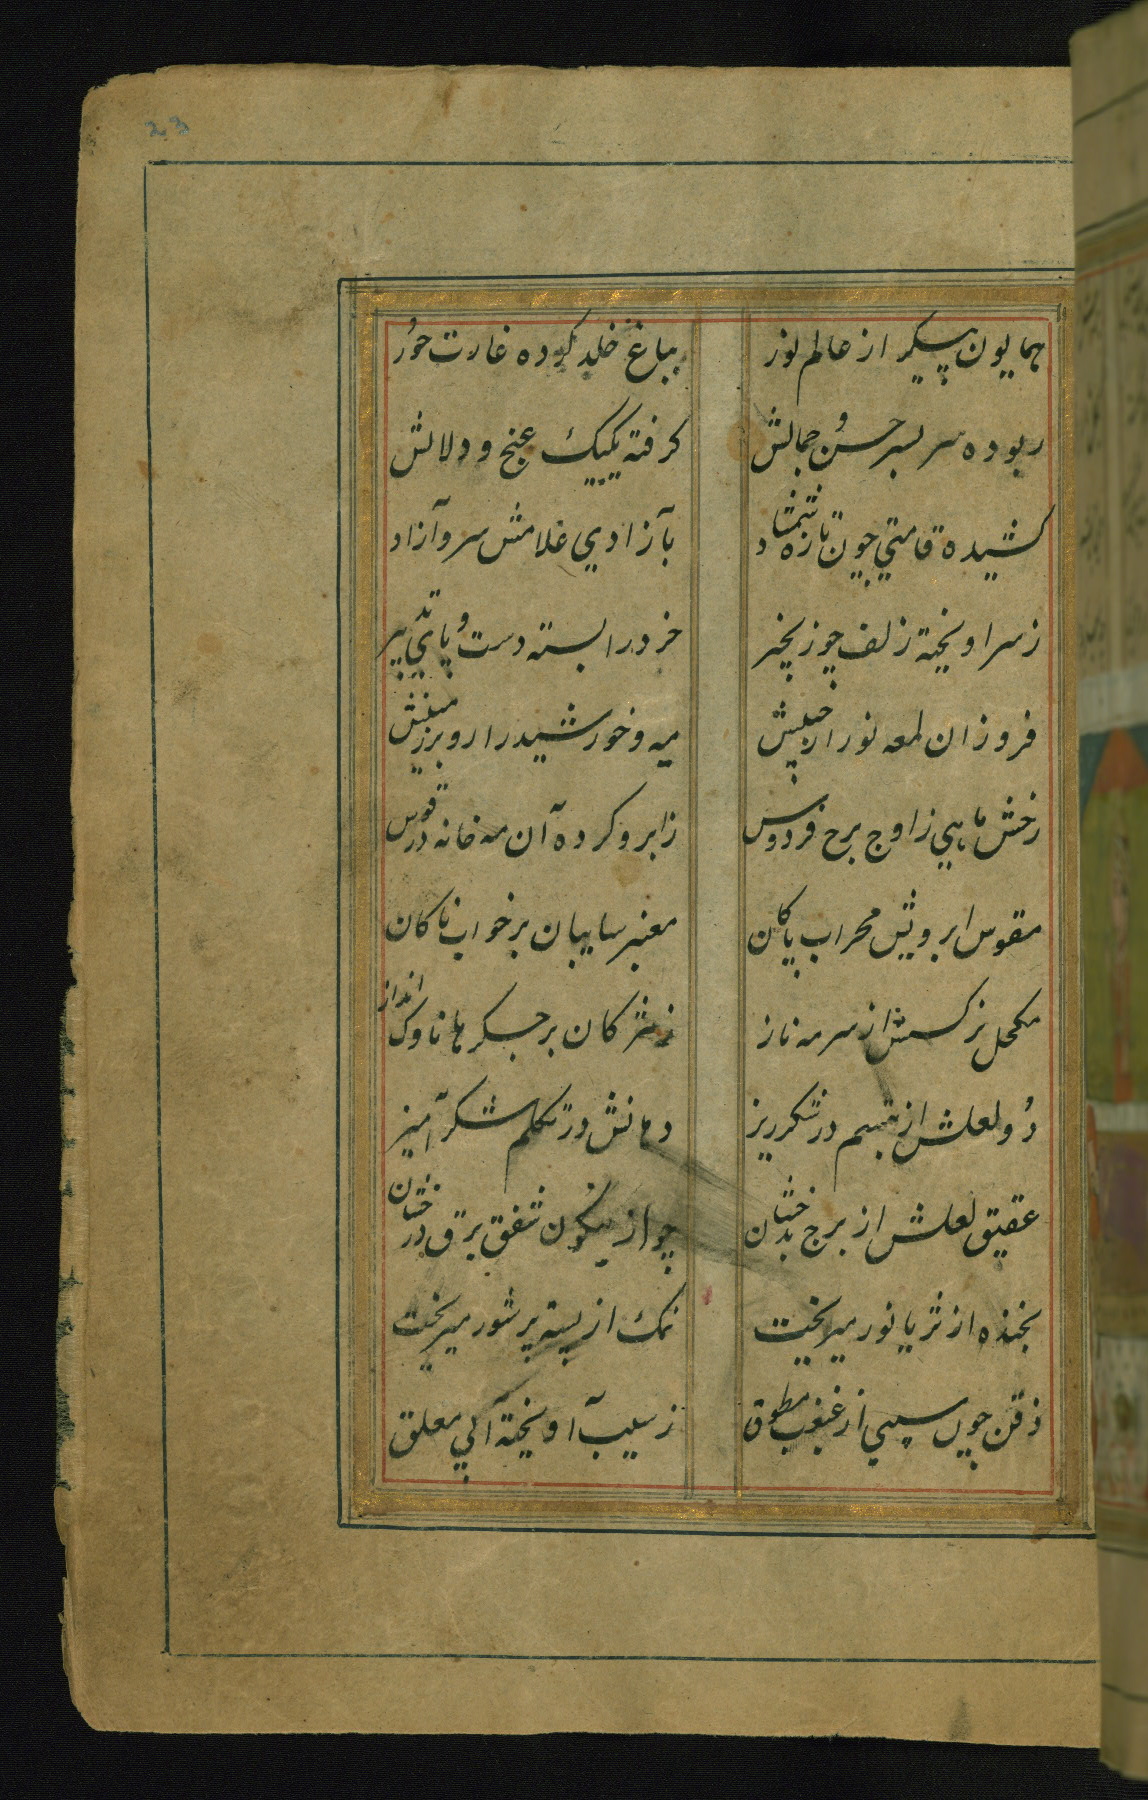 23
همایون پیکر از عالم نور
بباغ خلد کرده غارت حور
ربوده سر بسر حسن و جمالش
کرفته یک بیک غنج و دلالش
کشیده قامتی چون تازه شمشاد
بآزادی غلامش سرو آزاد
ز سر اویخته زلف چو زنجیر
خرد را بسته دست و پای تدبیر
فروزان لمعه نور از جبینش
مه و خورشید را رو بر زمینش
رخش ماهی ز اوج برج فردوس
ز ابرو کرده آن مه خانه در قوس
مقوس ابرویش محراب پاکان
معنبر سایبان بر خواب ناکان
مکحل نرکسش از سرمه ناز
ز مژکان بر جکرها ناوک انداز
دو لعلش از تبسم در شکرریز
دهانش در تکلم شکرآمیز
عقیق لعلش از برج بدخشان
چو از میکون شفق برق درخشان
بخنده از ثریا نور میریخت
نمک از پسته پر شور میریخت
ذقن چون سیبی از غبغب مطوق
ز سیب آویخته آبی معلق